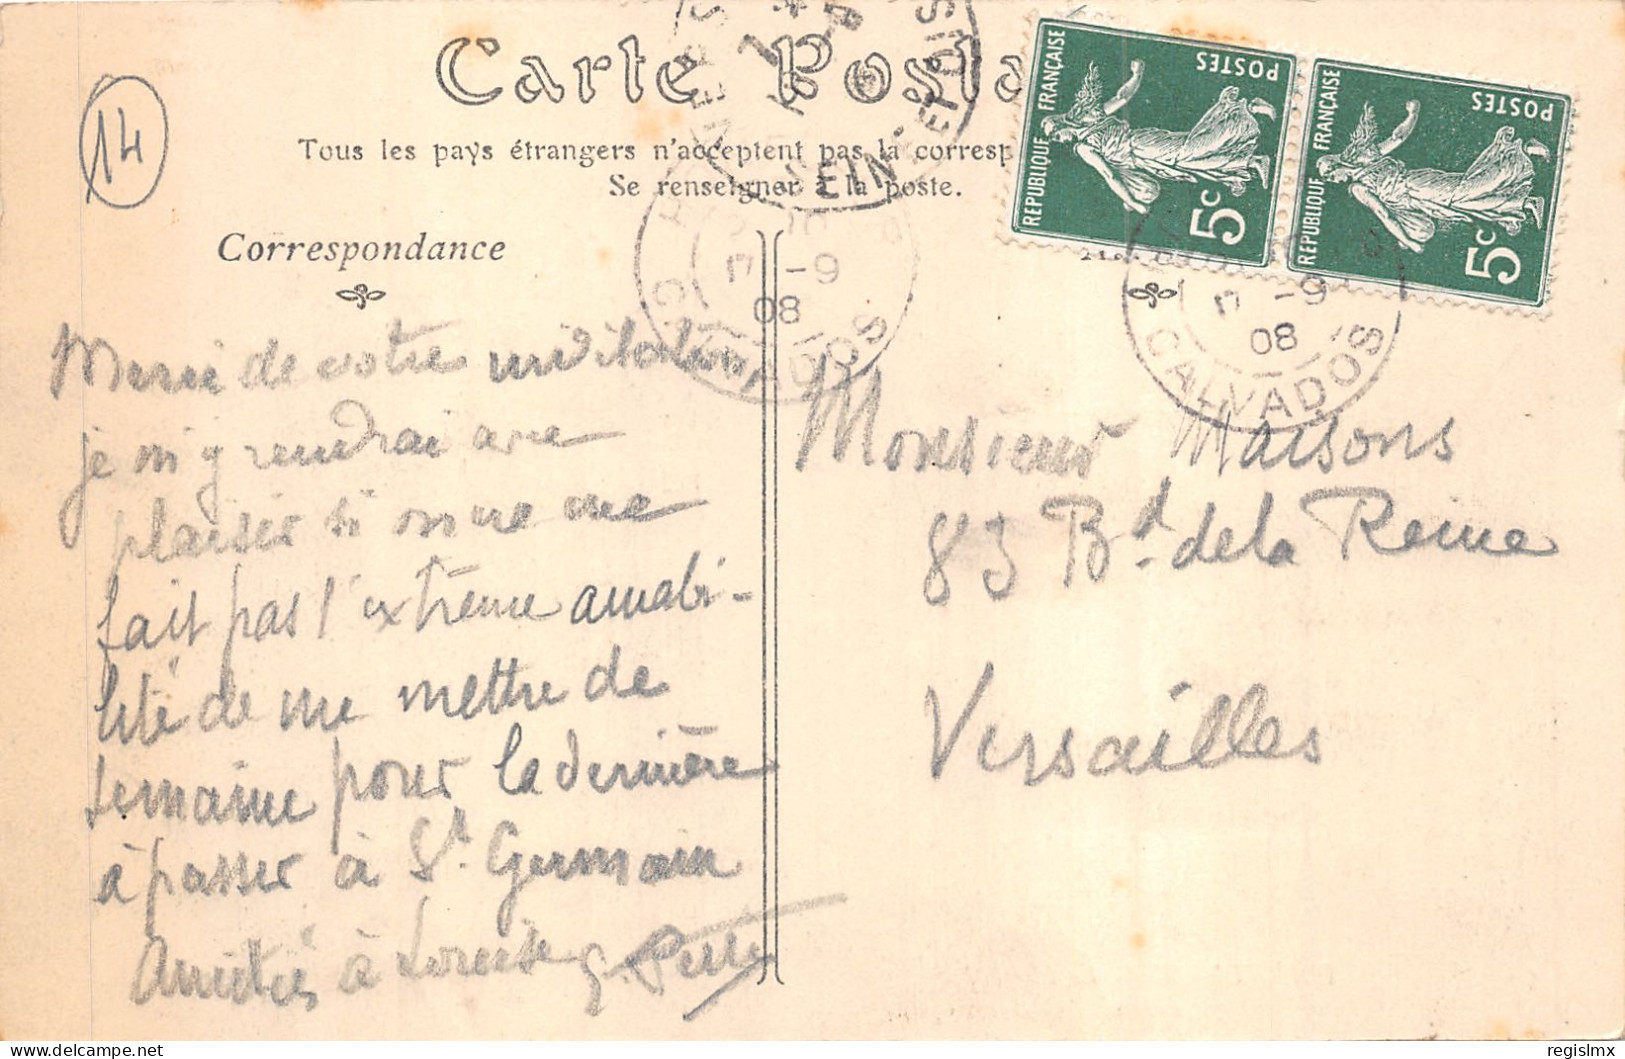 14
Carte Posta
Tous les pays étrangers n'acceptent pas la corresp
Se renseigner à la poste.
Correspondance
Merci de votre invitation
je m'y rendrai avec
plaisir si on ne me
fait pas l'extrême amabi-
lité de me mettre de
semaine pour la dernière
à passer à St. Germain
Amitiés à Louise
RÉPUBLIQUE FRANÇAISE
POSTES
5c
RÉPUBLIQUE FRANÇAISE
POSTES
5c
SEINE-ET-OISE
17 -9
08
CALVADOS
17 -9
08
CALVADOS
Monsieur Maisons
83 Bd. de la Reine
Versailles
regislmx
www.delcampe.net